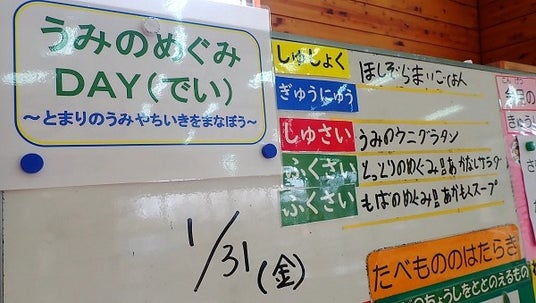 うみのめぐみ
DAY(でい)
～とまりのうみやちいきをまなぼう～
1/31(金)
しゅしょく ほしぞらまいごはん
ぎゅうにゅう
しゅさい うみのウニグラタン
ふくさい とっとりのめぐみ!!あかなしサラダ
ふくさい もばのめぐみ!!あかもくスープ
たべもののはたらき
ちょうしをととのえるもの
今日の